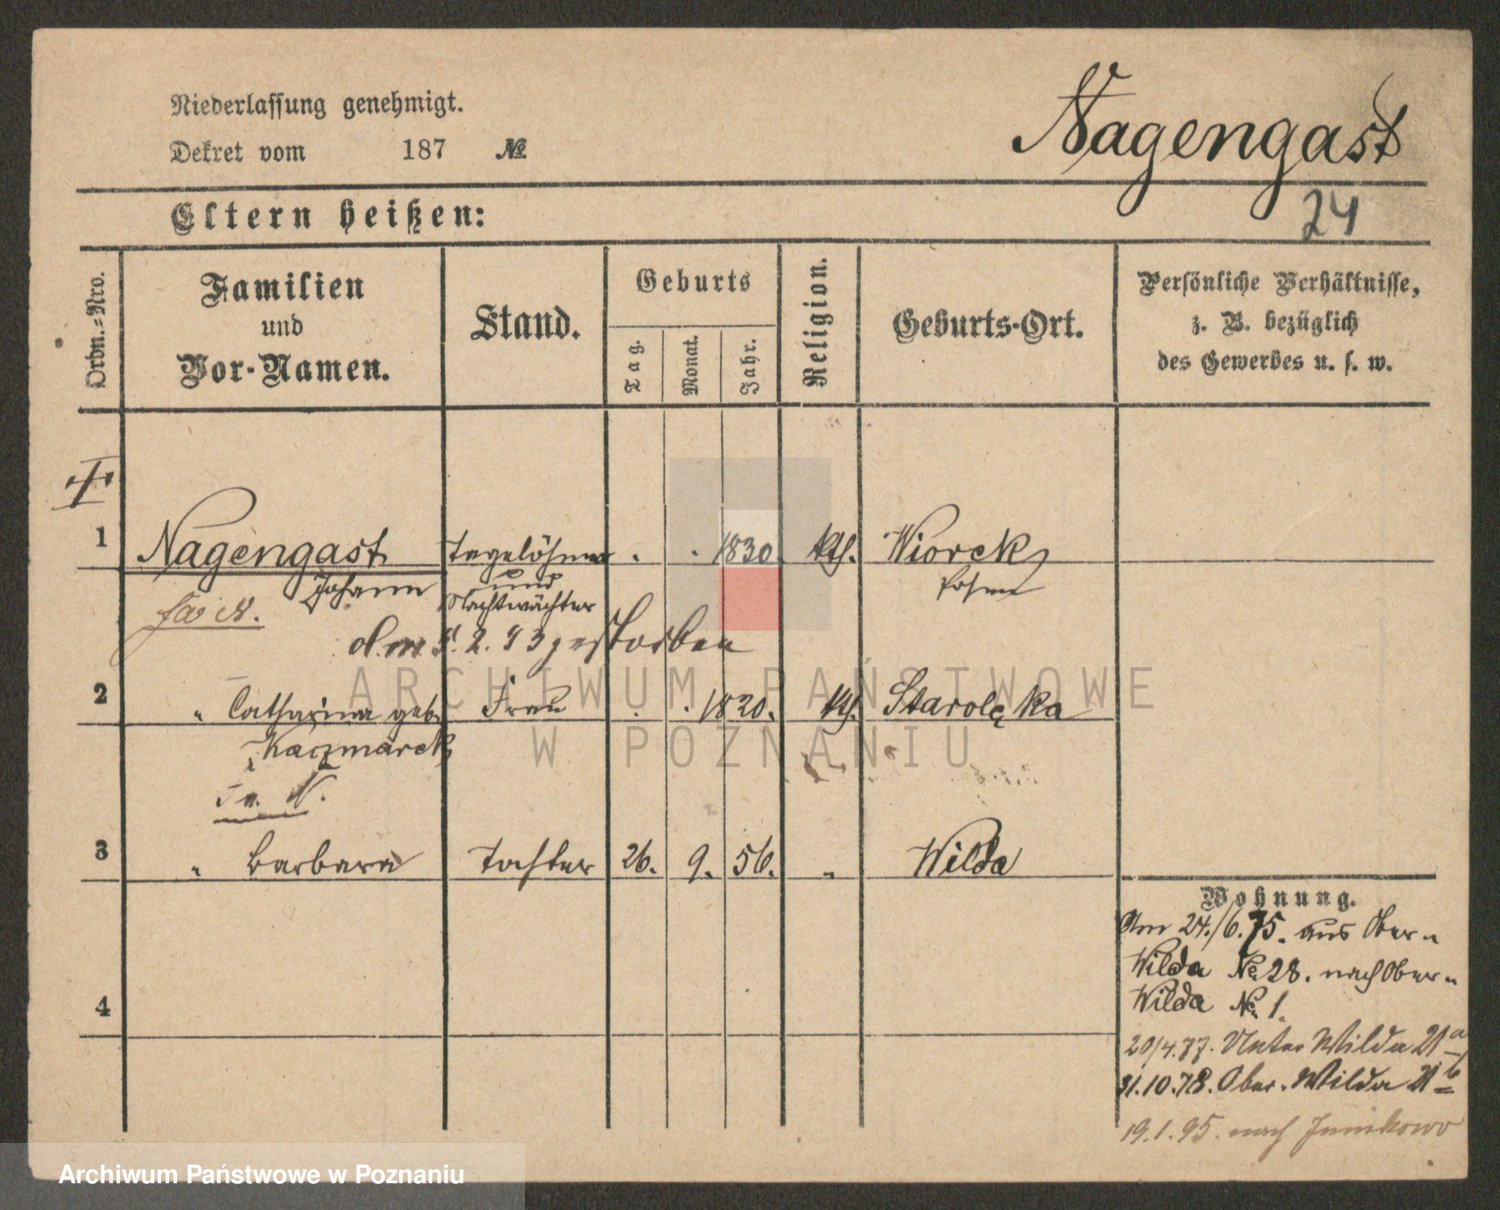 Niederlassung genehmigt.
Dekret vom 187 №
Nagengast
24
Eltern heißen:
Ordn.-Nro.
Familien
und
Vor-Namen.
Stand.
Geburts
Tag.
Monat.
Jahr.
Religion.
Geburts-Ort.
Persönliche Verhältnisse,
z. B. bezüglich
des Gewerbes u. s. w.
1 Nagengast Tagelöhner . . 1830. kth. Wiorek
Johann und Posen
Nachtwächter
gestorben
2 " Catharina geb. Frau . . 1820. kth. Starolęka
Kaczmarek
3 " Barbara Tochter 26. 9. 56. " Wilda
Wohnung.
Am 24./6. 75. aus Ober-
Wilda № 28. nach Ober-
Wilda № 1.
4
20/4.77. Unter Wilda 21a
31.10.78. Ober-Wilda 21b
19.1.95. nach Junikowo
ARCHIWUM PAŃSTWOWE
W POZNANIU
Archiwum Państwowe w Poznaniu